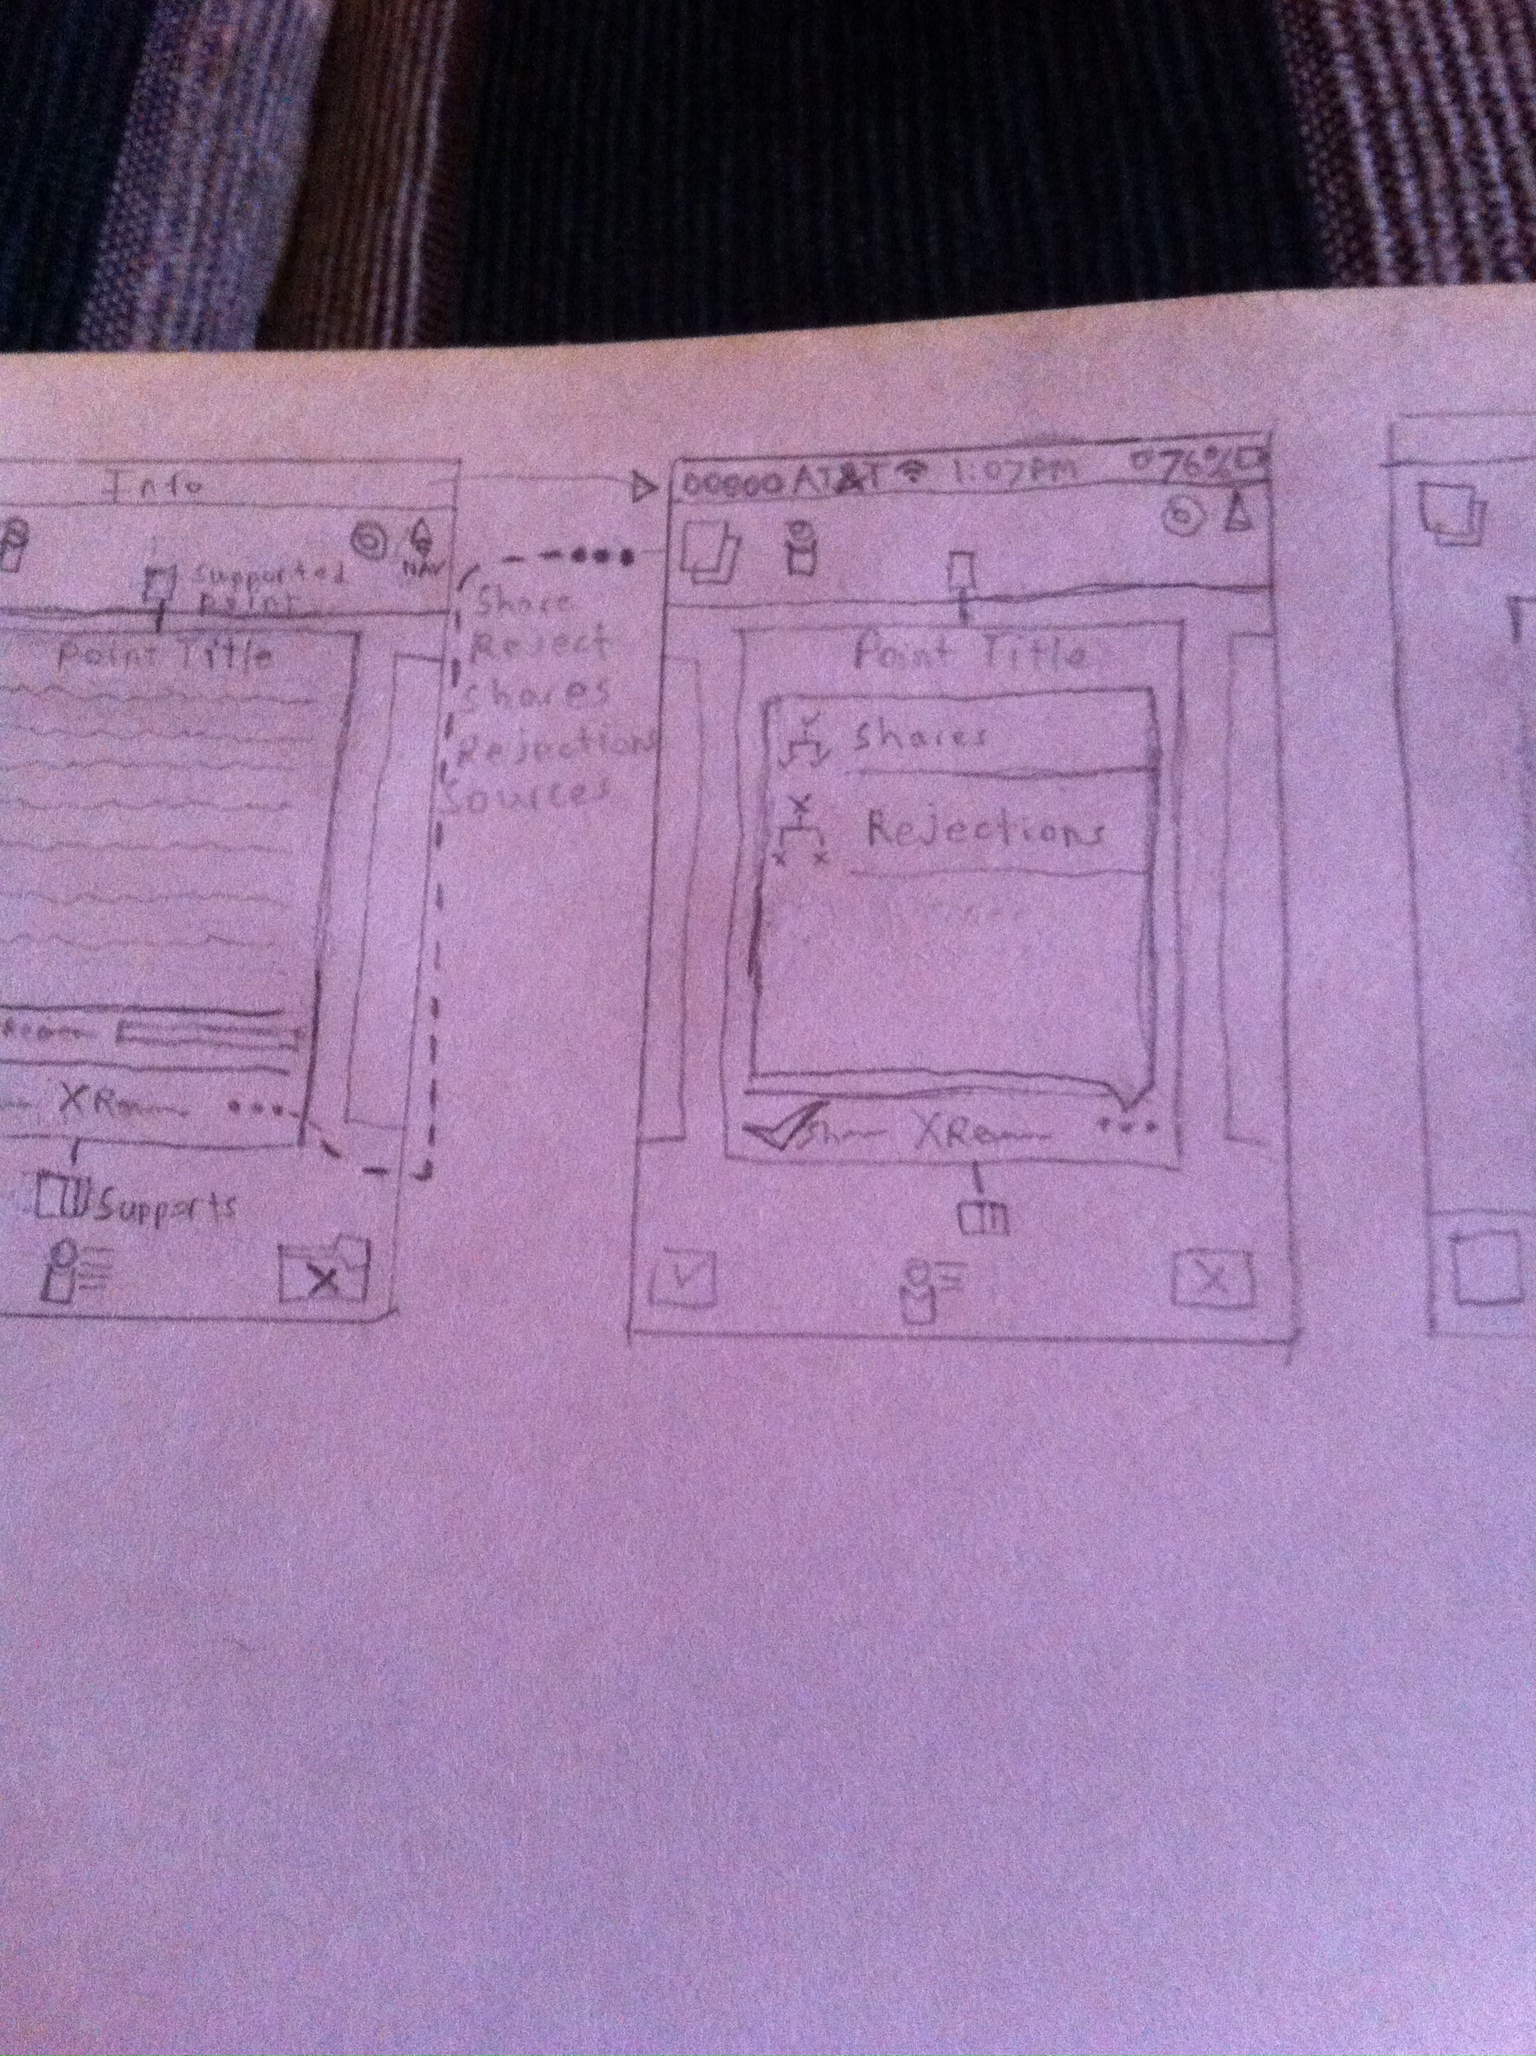 Info
NAV
Supported
Point
Point Title
X
Supports
X
Share
Reject
Shares
Rejections
Sources
00000 AT&T 1:07PM 76%
Point Title
Shares
Rejections
X
X